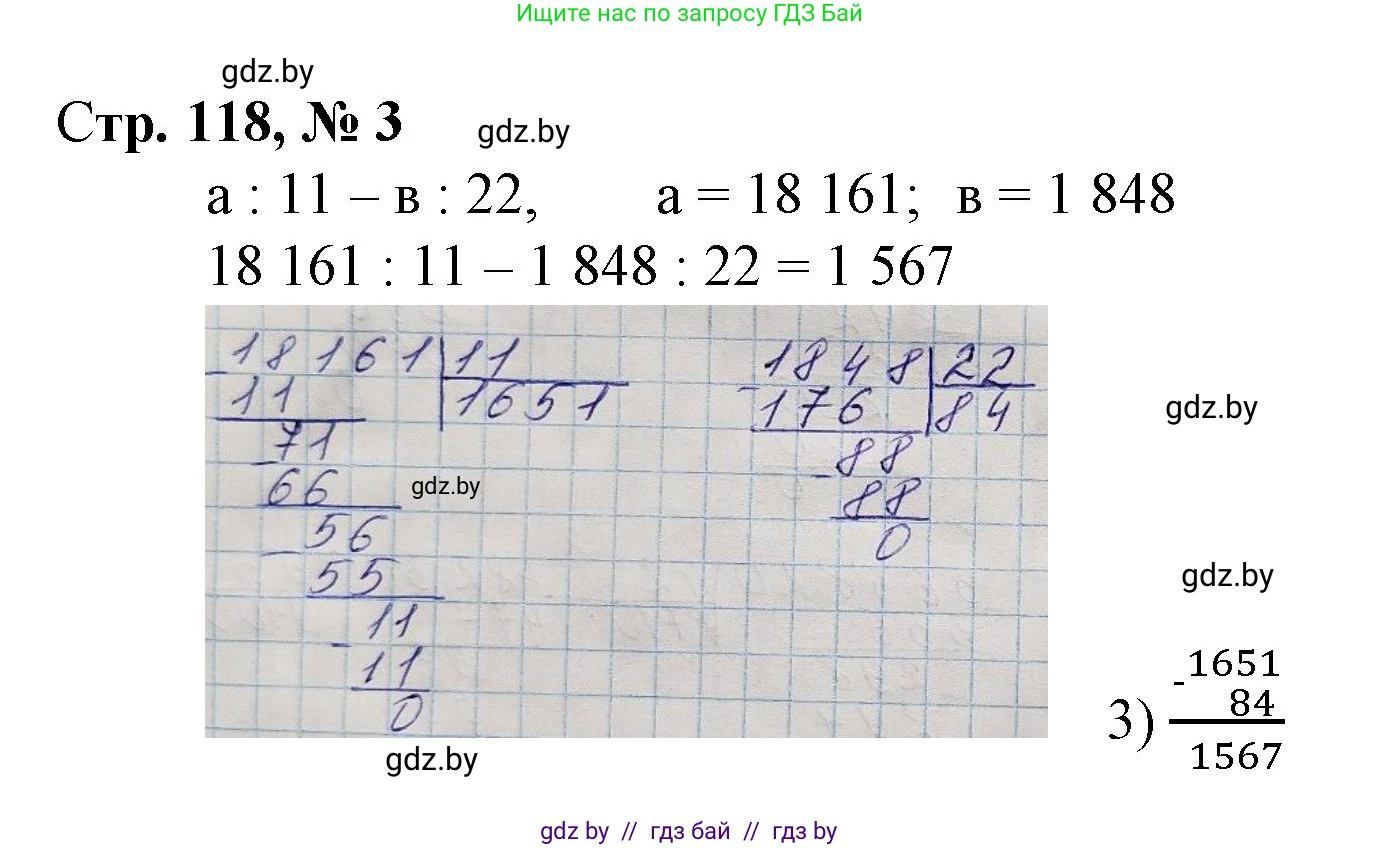 Ищите нас по запросу ГДЗ Бай
gdz.by
Стр. 118, № 3
gdz.by
а : 11 – в : 22, а = 18 161; в = 1 848
18 161 : 11 – 1 848 : 22 = 1 567
18161 11
- 11 1651
71
- 66
56
- 55
11
- 11
0
gdz.by
1848 22
- 176 84
88
- 88
0
gdz.by
gdz.by
3) - 1651
84
1567
gdz.by
gdz by // гдз бай // гдз by